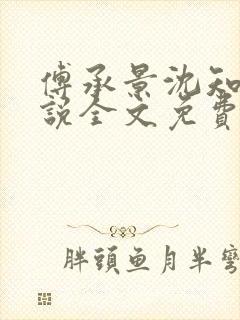 傅承景沈知
説全文免費
胖頭魚月半彎